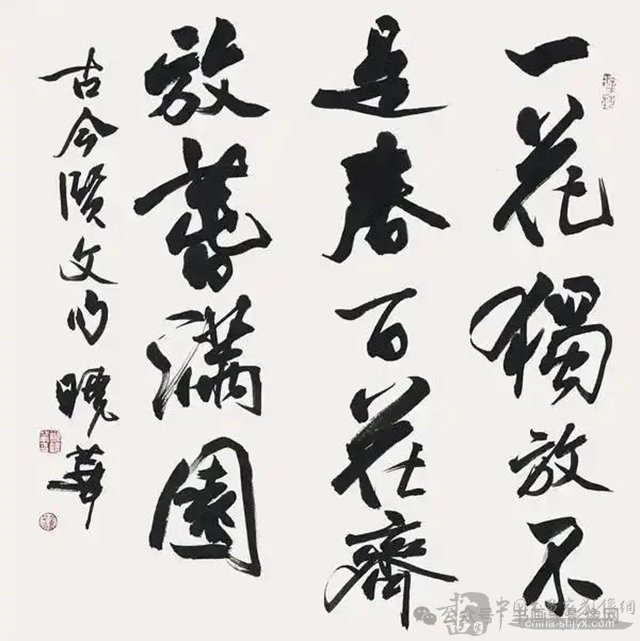 一花獨放不
是春百花齊
放春滿園
古今賢文句曉華
china-shjyx.com